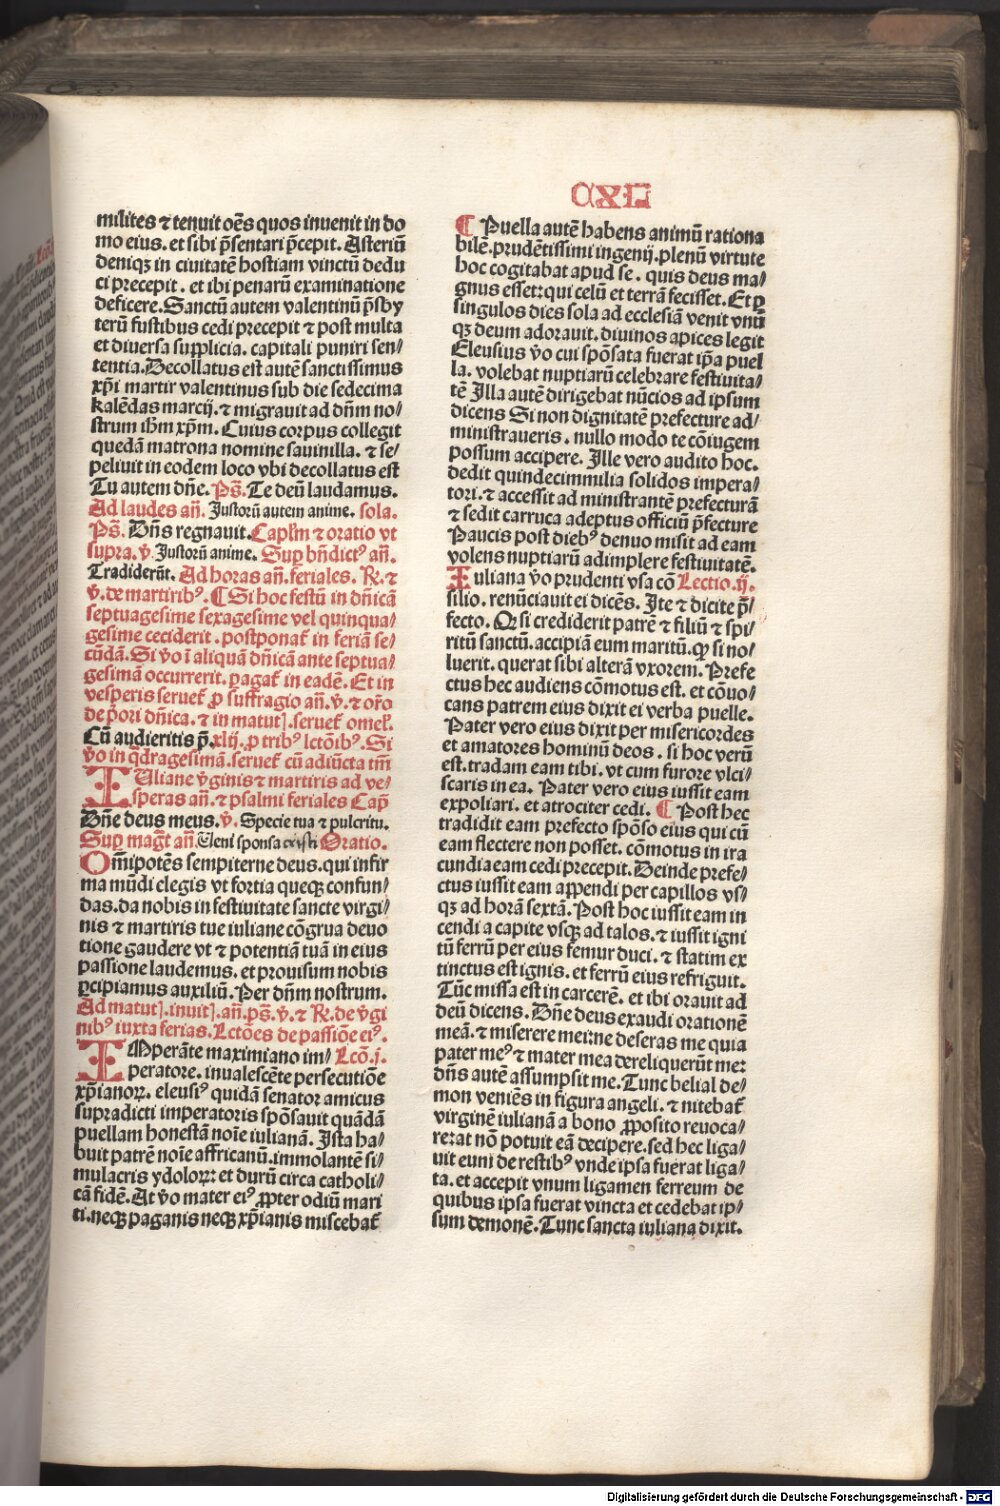 CXL
milites ⁊ tenuit oēs quos inuenit in do
mo eius. et sibi p̄sentari p̄cepit. Asteriū
deniqꝫ in ciuitatē hostiam vinctū dedu
ci precepit. et ibi penarū examinatione
deficere. Sanctū autem valentinū p̄sby
terū fustibus cedi precepit ⁊ post multa
et diuersa supplicia. capitali puniri sen/
tentia. Decollatus est autē sanctissimus
xp̄i martir valentinus sub die sedecima
kalēdas marcij. ⁊ migrauit ad dn̄m no/
strum ihm̄ xp̄m. Cuius corpus collegit
quedā matrona nomine sauinilla. ⁊ se/
peliuit in eodem loco vbi decollatus est
Tu autem dn̄e. Ps̄. Te deū laudamus.
Ad laudes an̄. Justorū autem anime. sola.
Ps̄. Dn̄s regnauit. Caplm̄ ⁊ oratio vt
supra. v̄. Justorū anime. Sup bn̄dictꝰ an̄.
Tradiderūt. Ad horas an̄. feriales. R̄. ⁊
v̄. de martiribꝰ. ¶ Si hoc festū in dn̄icā
septuagesime sexagesime vel quinqua/
gesime ceciderit. postponat̄ in feriā se/
cūdā. Si v̄o ī aliquā dn̄icā ante septua/
gesimā occurrerit. ꝑagat̄ in eadē. Et in
vesperis seruet̄ ꝓ suffragio an̄. v̄. ⁊ or̄o
de p̄ori dn̄ica. ⁊ in matut̄. seruet̄ omel̄.
Cū audieritis p̄. xlij. ꝓ tribꝰ lctōibꝰ. Si
v̄o in q̄dragesimā. seruet̄ cū adiūcta tm̄
IUliane v̄ginis ⁊ martiris ad ve/
speras an̄. ⁊ psalmi feriales Cap̄
Dn̄e deus meus. v̄. Specie tua ⁊ pulcritu.
Sup maḡt an̄. Veni sponsa cristi Oratio.
Om̄ipotēs sempiterne deus. qui infir
ma mūdi elegis vt fortia queqꝫ confun/
das. da nobis in festiuitate sancte virgi/
nis ⁊ martiris tue iuliane cōgrua deuo
tione gaudere vt ⁊ potentiā tuā in eius
passione laudemus. et prouisum nobis
ꝑcipiamus auxiliū. Per dn̄m nostrum.
Ad matut̄. inuit̄. an̄. ps̄. v̄. ⁊ R̄. de v̄gi
nibꝰ iuxta ferias. Lctōes de passiōe eiꝰ.
IMperāte maximiano im/ Lcō. j.
peratore. inualescēte persecutiōe
xp̄ianoꝝ. eleusiꝰ quidā senator amicus
supradicti imperatoris spōsauit quādā
puellam honestā noīe iulianā. Ista ha/
buit patrē noīe affricanū. immolantē si/
mulacris ydoloꝝ: et durū circa catholi/
cā fidē. At v̄o mater eiꝰ ꝓpter odiū mari
ti. neqꝫ paganis neqꝫ xp̄ianis miscebat̄
¶ Puella autē habens animū rationa
bilē. prudētissimi ingenij. plenū virtute
hoc cogitabat apud se. quis deus ma/
gnus esset: qui celū et terrā fecisset. Et ꝑ
singulos dies sola ad ecclesiā venit vnū
qꝫ deum adorauit. diuinos apices legit
Eleusius v̄o cui spōsata fuerat ip̄a puel
la. volebat nuptiarū celebrare festiuita/
tē Illa autē dirigebat nūcios ad ipsum
dicens Si non dignitatē prefecture ad/
ministraueris. nullo modo te cōiugem
possum accipere. Ille vero audito hoc.
dedit quindecimmilia solidos impera/
tori. ⁊ accessit ad ministrantē prefecturā
⁊ sedit carruca adeptus officiū p̄fecture
Paucis post diebꝰ denuo misit ad eam
volens nuptiarū adimplere festiuitatē.
Iuliana v̄o prudenti vsa cō Lectio. ij.
silio. renūciauit ei dicēs. Ite ⁊ dicite p̄/
fecto. Qꝛ si crediderit patrē ⁊ filiū ⁊ spi/
ritū sanctū. accipiā eum maritū. qꝛ si no/
luerit. querat sibi alterā vxorem. Prefe
ctus hec audiens cōmotus est. et cōuo/
cans patrem eius dixit ei verba puelle.
Pater vero eius dixit per misericordes
et amatores hominū deos. si hoc verū
est. tradam eam tibi. vt cum furore vlci/
scaris in ea. Pater vero eius iussit eam
expoliari. et atrociter cedi. ¶ Post hec
tradidit eam prefecto spōso eius qui cū
eam flectere non posset. cōmotus in ira
cundia eam cedi precepit. Deinde prefe/
ctus iussit eam appendi per capillos vs/
qꝫ ad horā sextā. Post hoc iussit eam in
cendi a capite vsqꝫ ad talos. ⁊ iussit igni
tū ferrū per eius femur duci. ⁊ statim ex
tinctus est ignis. et ferrū eius refriguit.
Tūc missa est in carcerē. et ibi orauit ad
deū dicens. Dn̄e deus exaudi orationē
meā. ⁊ miserere mei: ne deseras me quia
pater meꝰ ⁊ mater mea dereliquerūt me:
dn̄s autē assumpsit me. Tunc belial de/
mon veniēs in figura angeli. ⁊ nitebat̄
virginē iulianā a bono ꝓposito reuoca/
re: at nō potuit eā decipere. sed hec liga/
uit eum de restibꝰ vnde ipsa fuerat liga/
ta. et accepit vnum ligamen ferreum de
quibus ipsa fuerat vincta et cedebat ip/
sum demonē. Tunc sancta iuliana dixit.
Digitalisierung gefördert durch die Deutsche Forschungsgemeinschaft - DFG